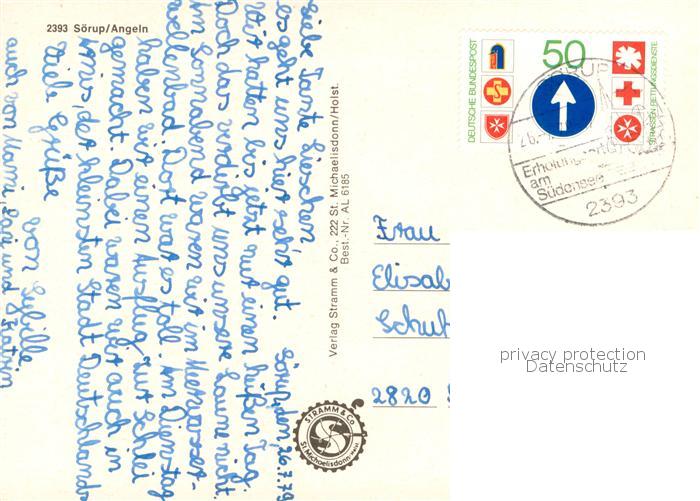 2393 Sörup/Angeln
Sörup, den 26.7.79
Liebe Tante Lieschen
es geht uns hier sehr gut.
Wir hatten bis jetzt nur einen heißen Tag.
Doch das verdirbt uns unsere Laune nicht.
Am Sonnabend waren wir im Meerwasser-
wellenbad. Dort war es toll. Am Dienstag
haben wir einen Ausflug zur Schlei
gemacht. Dabei waren wir auch in
Arnis, der kleinsten Stadt Deutschlands
Viele Grüße
von Sybille
auch von Mami, und Katrin
Verlag Stramm & Co., 222 St. Michaelisdonn/Holst.
Best.-Nr. AL 6185
STRAMM & Co
St. Michaelisdonn
DEUTSCHE BUNDESPOST
50
STRASSEN RETTUNGSDIENSTE
SÖRUP
26.-7.
Erholung
am
Südensee
2393
Frau
Elisab
Schul
2820
privacy protection
Datenschutz